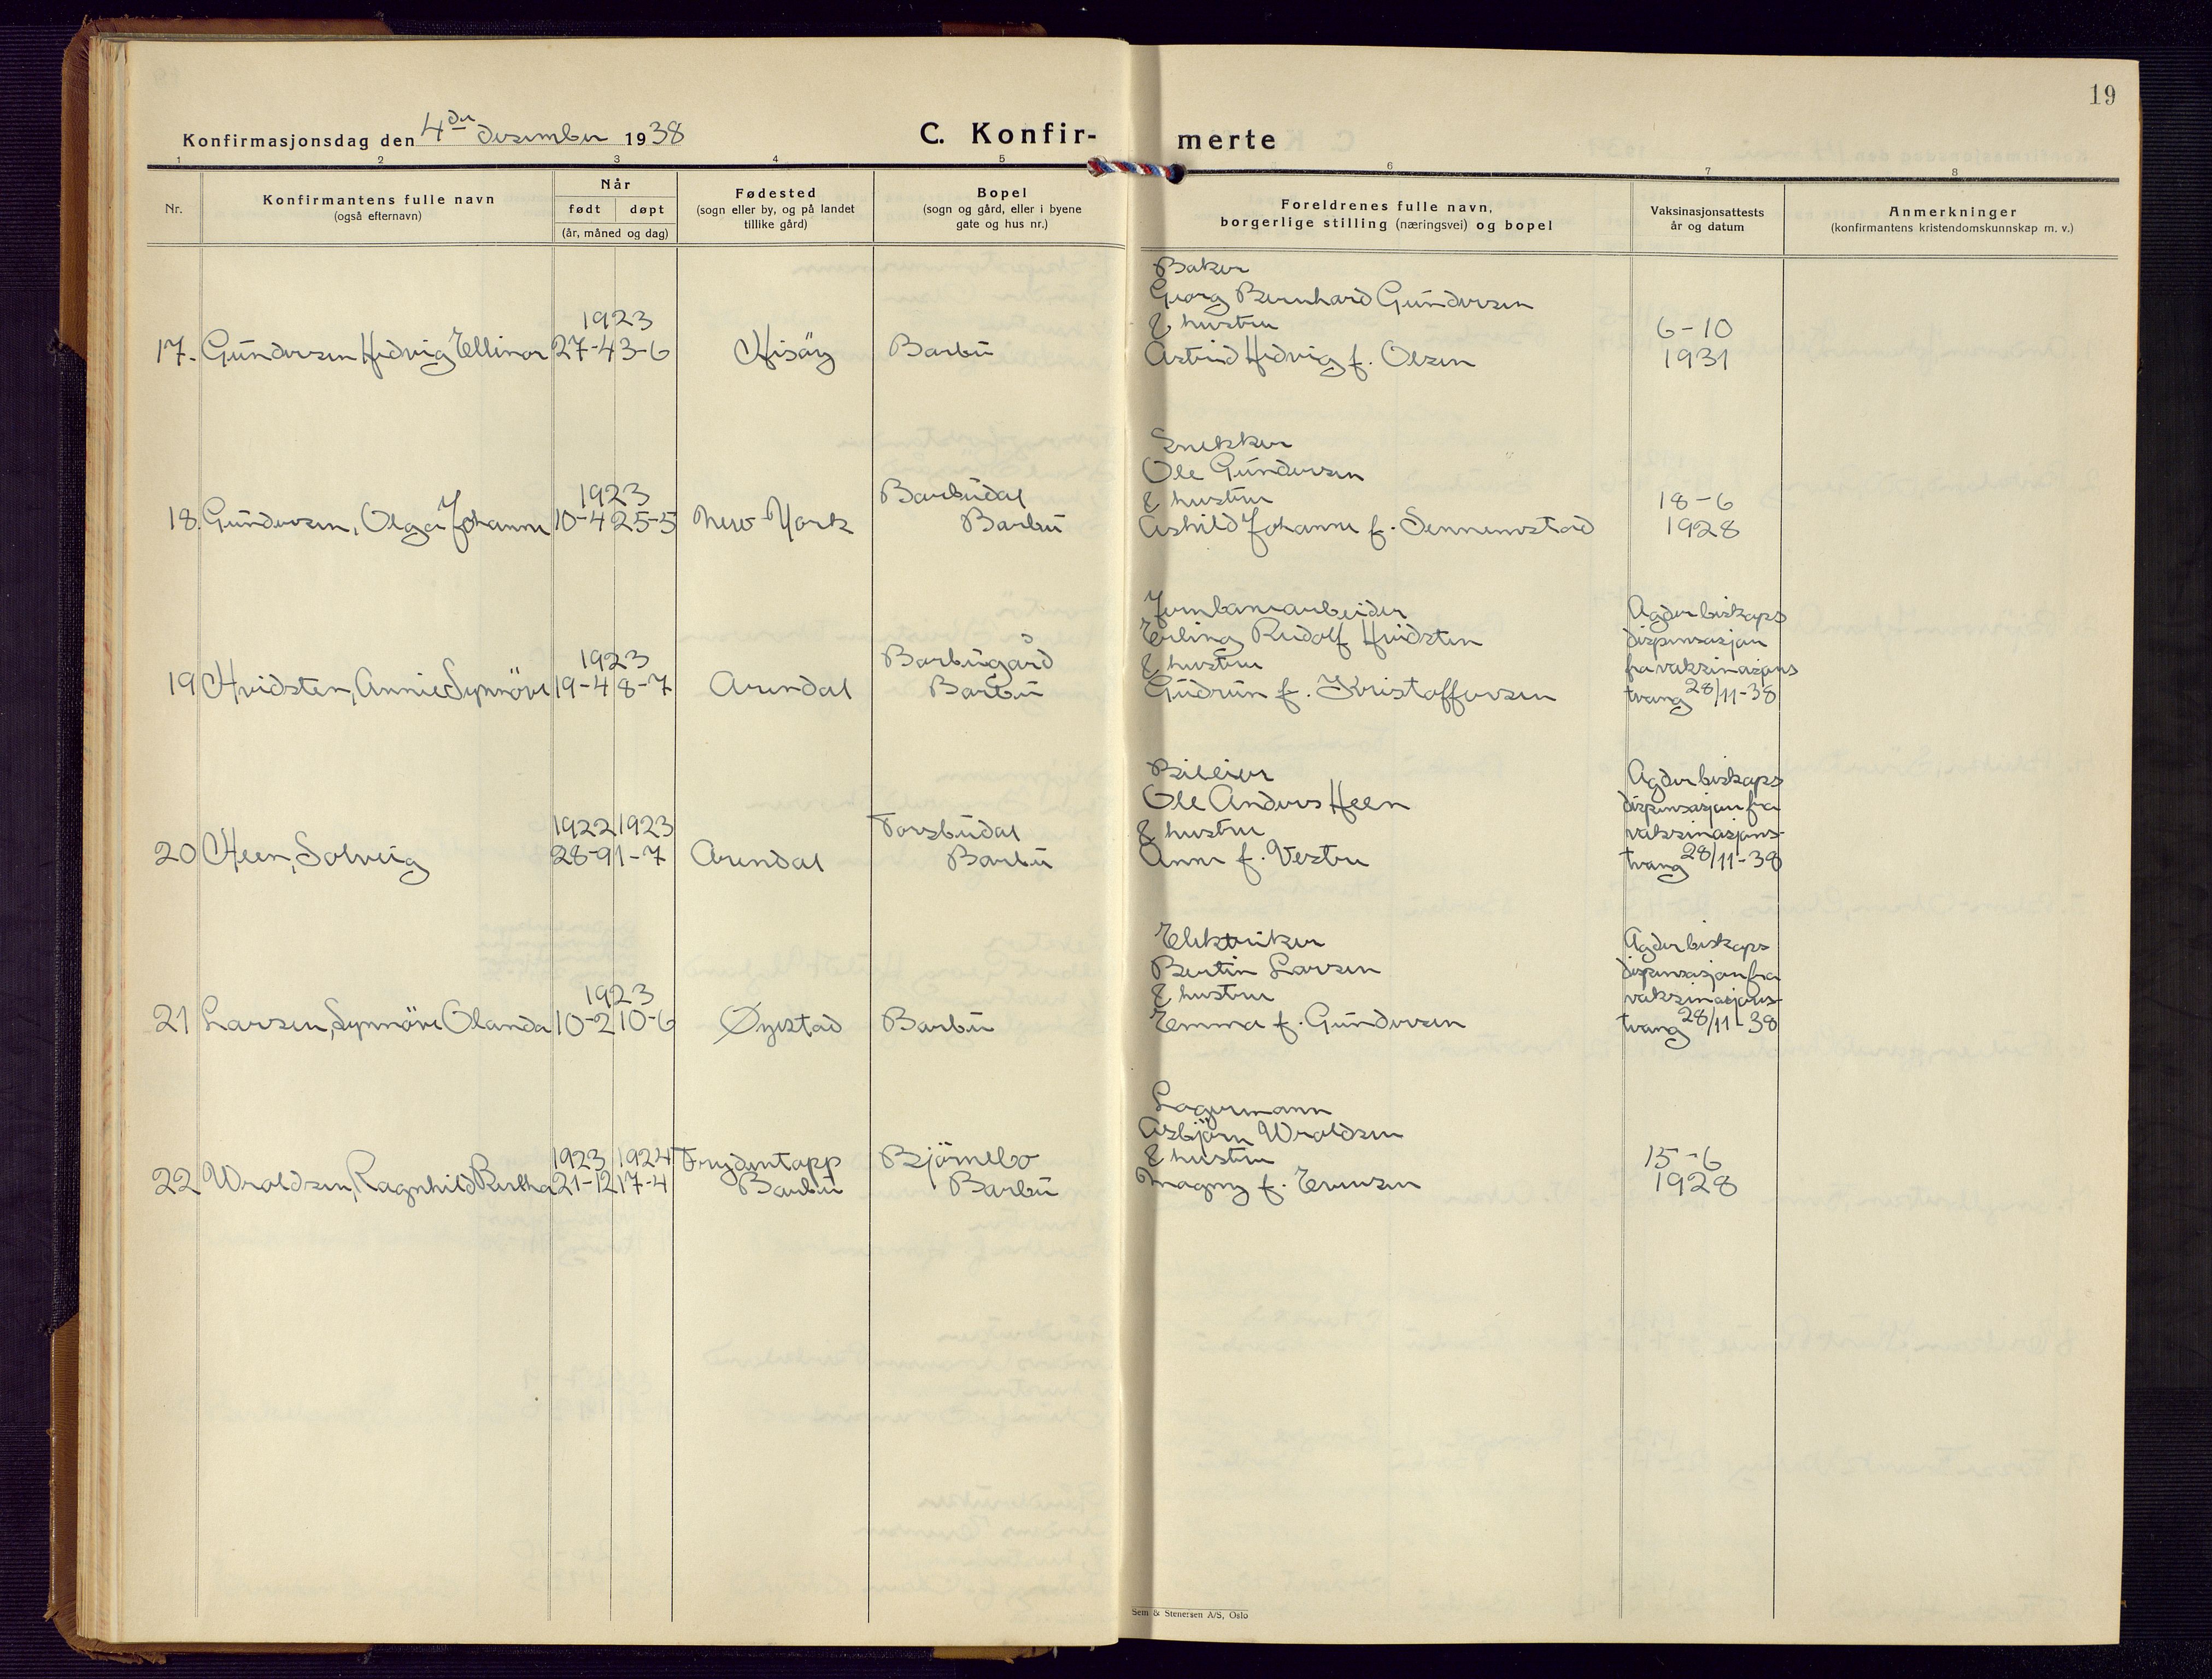 19
Konfirmasjonsdag den 4de desember 1938
C. Konfir- merte
1 2 3 4 5 6 7 8
Nr.
Konfirmantens fulle navn
(også efternavn)
Når
født døpt
(år, måned og dag)
Fødested
(sogn eller by, og på landet
tillike gård)
Bopel
(sogn og gård, eller i byene
gate og hus nr.)
Foreldrenes fulle navn,
borgerlige stilling (næringsvei) og bopel
Vaksinasjonsattests
år og datum
Anmerkninger
(konfirmantens kristendomskunnskap m. v.)
Baker
Georg Bernhard Gundersen
1923 & hustru 6-10
17. Gundersen Hedvig Ellinor 27-4 3-6 Hisöy Barbu Astrid Hedvig f. Olsen 1931
Snekker
Ole Gundersen
1923 Barbudal & hustru 18-6
18. Gundersen, Olga Johanne 10-4 25-5 New-York Barbu Ashild Johanne f. Sennumstad 1928
Jernbanearbeider Agder biskaps
Erling Rudolf Hvidsten dispensasjon
1923 Barbugård & hustru fra vaksinasjons
19 Hvidsten, Annie Synnöve 19-4 8-7 Arendal Barbu Gudrun f. Kristoffersen tvang 28/11-38
Bileier Agder biskaps
Ole Anders Heen dispensasjon fra
1922 1923 Torsbudal & hustru vaksinasjons-
20 Heen, Solveig 28-9 1-7 Arendal Barbu Anne f. Vestre tvang 28/11-38
Elektriker Agder biskaps
Bertin Larsen dispensasjon fra
1923 & hustru vaksinasjons-
21 Larsen, Synnöve Olanda 10-2 10-6 Øyestad Barbu Emma f. Gundersen tvang 28/11-38
Lagermann
Asbjörn Wroldsen
1923 1924 Frydentopp Bjørnebo & hustru 15-6
22 Wroldsen, Ragnhild Bertha 21-12 17-4 Barbu Barbu Magny f. Evensen 1928
Sem & Stenersen A/S, Oslo